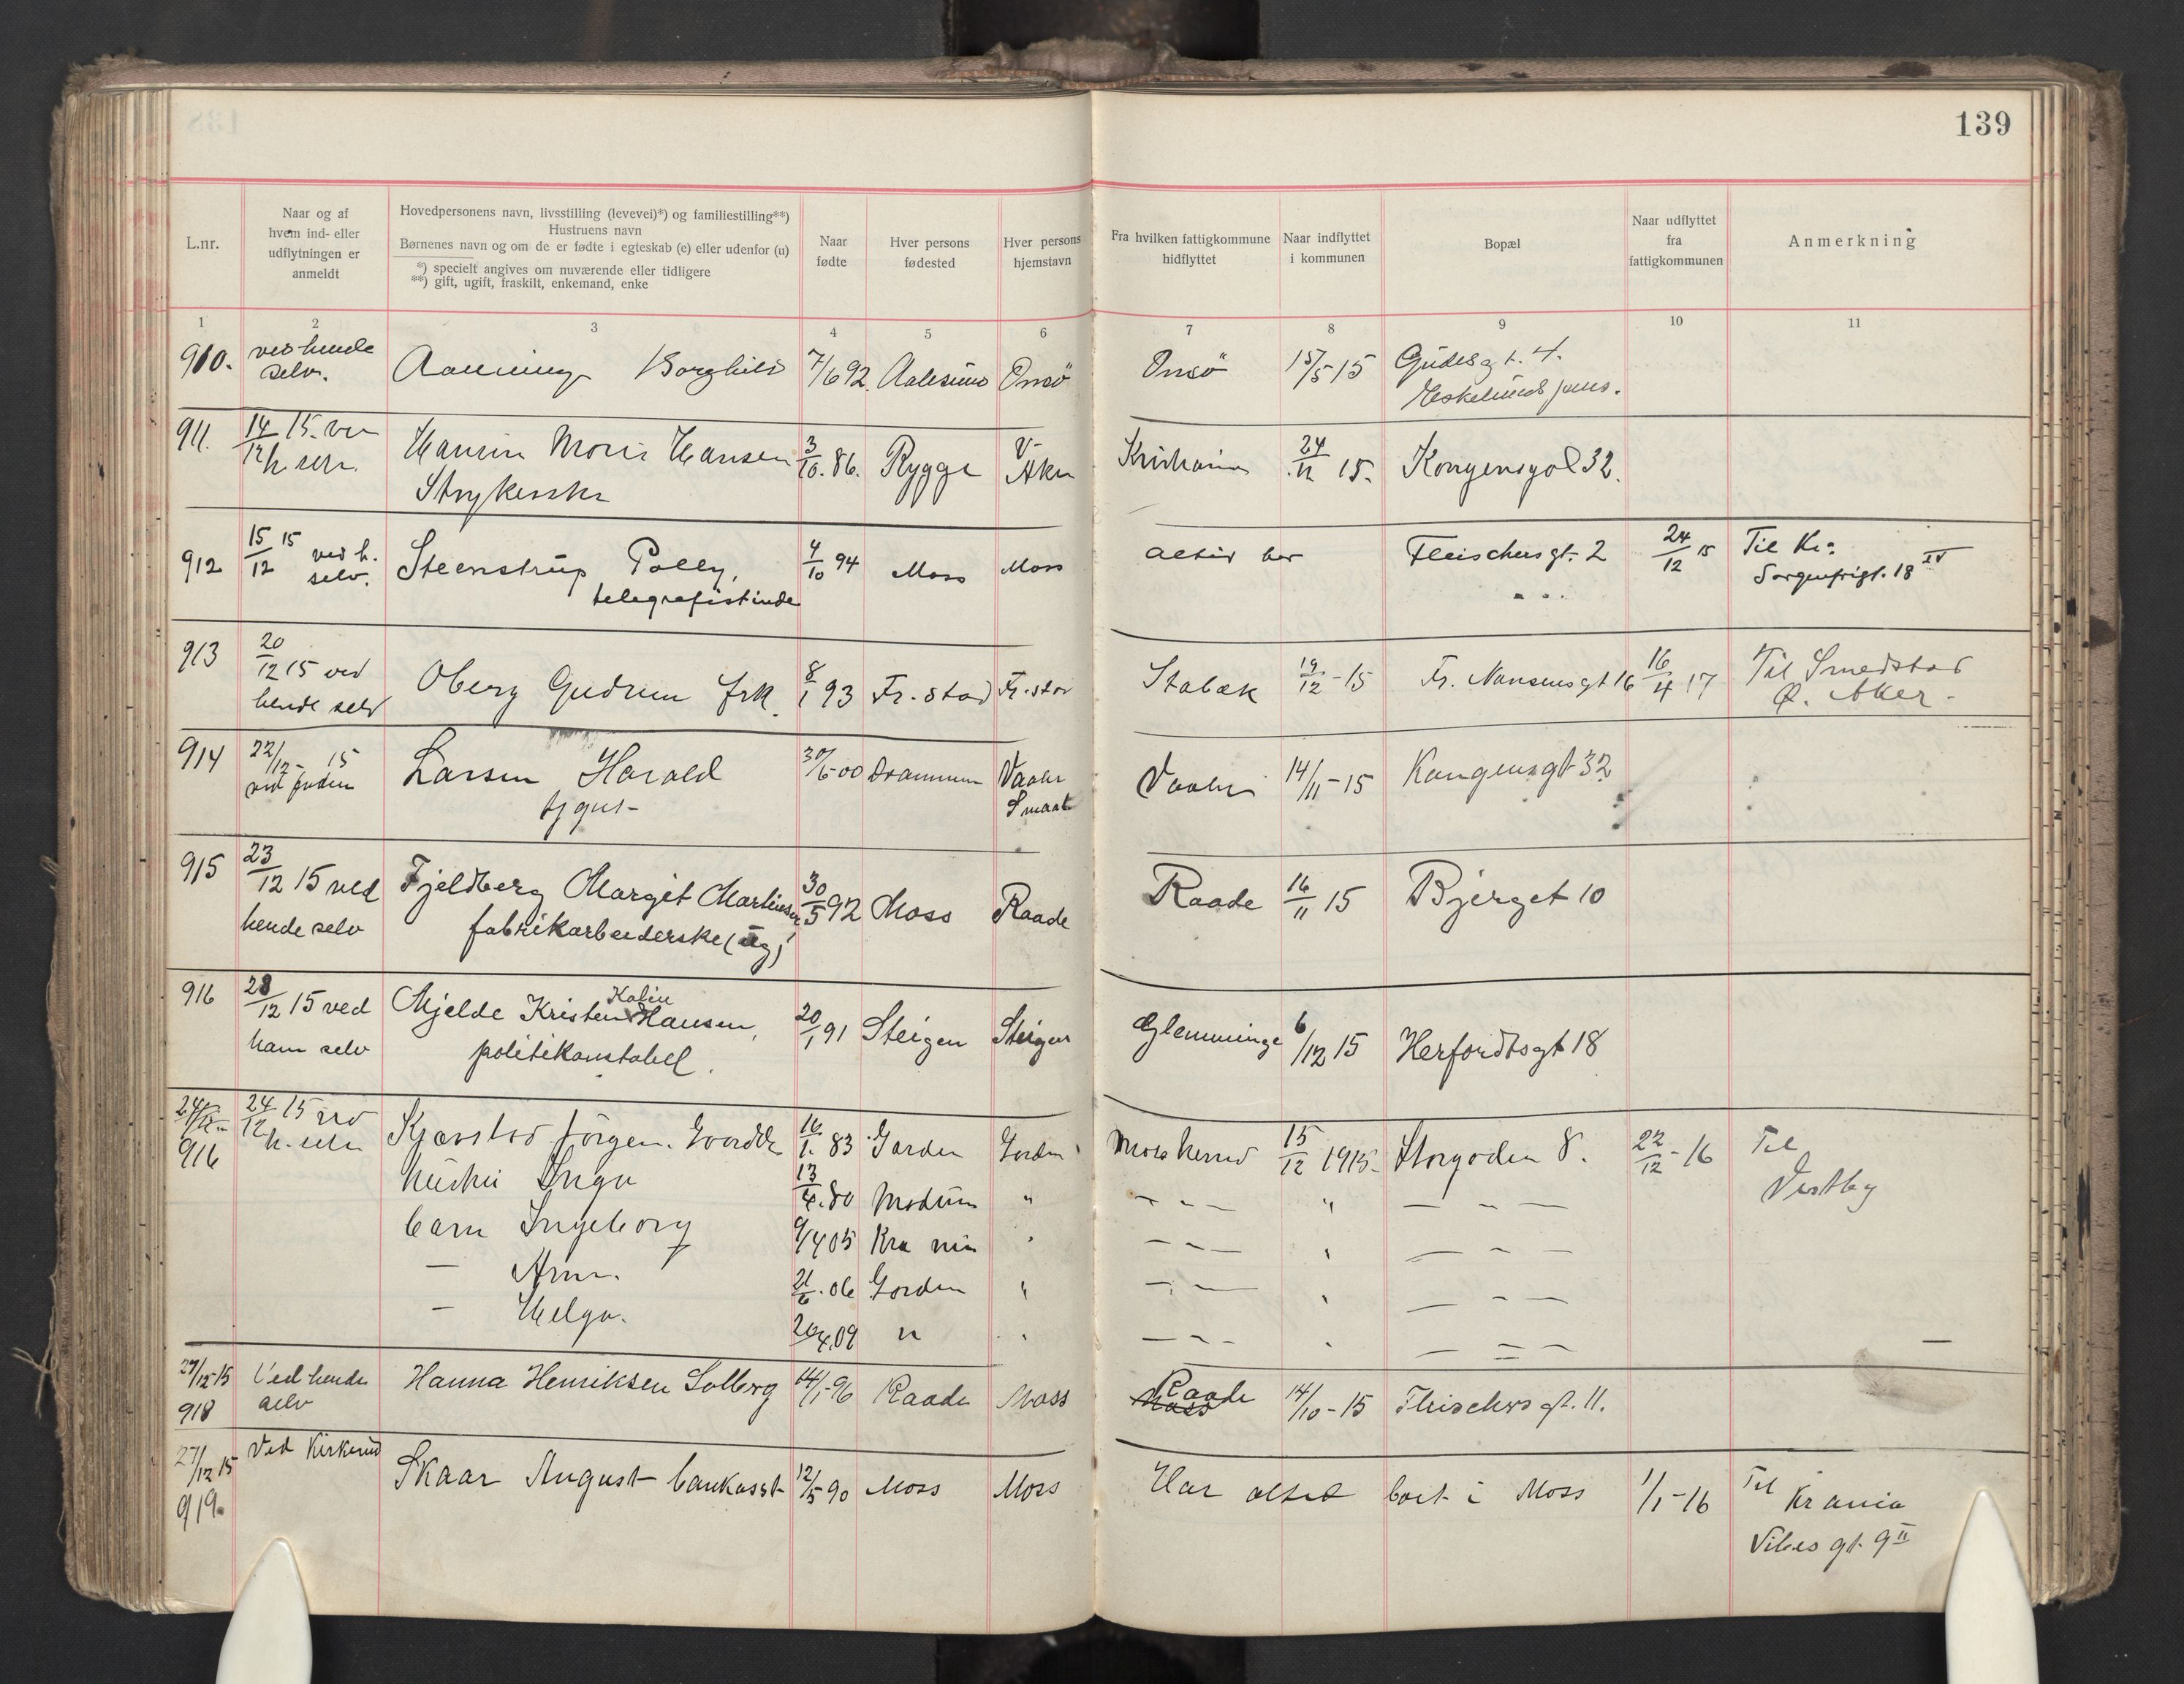 139
L.nr.
Naar og af
hvem ind- eller
udflytningen er
anmeldt
Hovedpersonens navn, livsstilling (levevei)*) og familiestilling**)
Hustruens navn
Børnenes navn og om de er fødte i egteskab (e) eller udenfor (u)
*) specielt angives om nuværende eller tidligere
**) gift, ugift, fraskilt, enkemand, enke
Naar
fødte
Hver persons
fødested
Hver persons
hjemstavn
Fra hvilken fattigkommune
hidflyttet
Naar indflyttet
i kommunen
Bopæl
Naar udflyttet
fra
fattigkommunen
Anmerkning
1 2 3 4 5 6 7 8 9 10 11
910. ved hende Borghild 7/6 92 Aalesund Onsö Onsö 15/5 15 Gudesgt. 4.
selv. Eskelunds pens.
911. 14/12 15. ved Hansen Hansen 3/10. 86. Rygge V. Aker Kristiania 24/11 15. Kongensgd 32.
h. selv.
912 15/12 15 ved h. Steenstrup Polly, 4/10 94 Moss Moss altid her Fleischersgt. 2 24/12 15 Til Kr:
selv. telegrafistinde Sorgenfrigt. 18 IV
913 20/12 15 ved Oberg Gudrun frk. 8/1 93 Fr.stad Fr.stad Stabæk 19/12-15 Fr. Nansensgt 16 16/4 17 Til Smedstad
hende selv Ø. Aker -
914 22/12- 15 Larsen Harald 30/6-00 Drammen Vaaler Vaaler 14/11-15 Kongensgt 32
ved tjgut- Smaal
915 23/12 15 ved Fjeldberg Margit Martinsen 30/5 92 Moss Raade Raade 16/11 15 Bjerget 10
hende selv fabrikarbeiderske (ug)
916 28/12 15 ved Mjelde Kristen Kolin Hansen, 20/1 91 Steigen Steigen Glemminge 6/12 15 Herfordtsgt 18
ham selv politikonstabel.
24/12- 24/12 15 ved Jörgen. 16/1. 83 Jorden 15/12 1915. Storgaden 8. 22/12-16 Til
916 h. selv Hustru Inga 13/4. 80 Modum " " Vestby
barn Ingeborg 9/4 05
— 21/6. 06 "
— Helga. 20/4 09 "
27/12-15 Ved hende Hanna Henriksen Solberg 14/1-96 Raade Moss Raade 14/10-15 Fleischers gt. 11.
918 selv
27/12 15 Ved Kirkerud Skaar August bankasst 12/5 90 Moss Moss Har altid boet i Moss 1/1-16 Til Krania
919. Vibes gt. 9 II